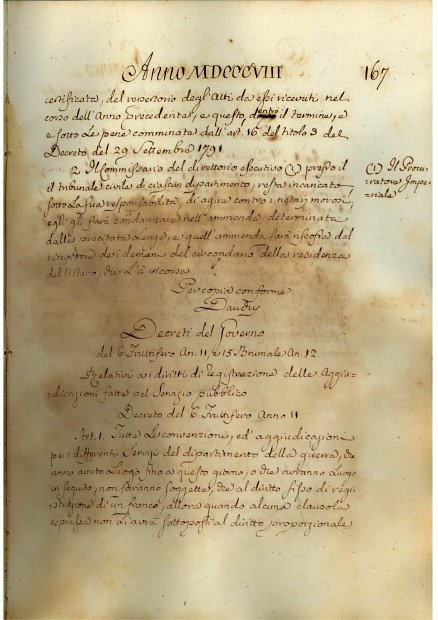 Anno MDCCCVIII
167
certificata, del repertorio degli Atti da essi ricevuti nel
corso dell'Anno precedente, e questo dentro il termine, e
e sotto le pene comminate dall'art. 16 del titolo 3 del
Decreto del 29 Settembre 1791
2. Il Commissario del direttorio esecutivo (1) presso il
il tribunale civile di ciascun dipartimento, resta incaricato,
sotto la sua responsabilità, di agire contro i notari morosi,
egli gli farà condannare nell'ammenda, determinata
dalla precitata Legge, e quell'ammenda sarà riscossa dal
ricevitore dei demanj del circondario della residenza
del Notaro, che l'è incorsa
(1) Il Procu-
ratore Impe-
riale
Per copia conforme
Dauchy
Decreti del Governo
del 6 Fruttifero An. 11, e 15 Brumale An. 12
Relativi ai diritti di registrazione delle Aggiu-
dicazioni fatte pel Servizio pubblico
Decreto del 6 Fruttifero Anno 11
Art. 1. Tutte le convenzioni, ed aggiudicazioni
pei differenti Servizi del dipartimento della guerra, che
anno avuto Luogo fino a questo giorno, o che avranno Luogo
in seguito, non saranno soggette, che al diritto fisso di regi-
strazione di un franco, allora quando alcuna clausola
espressa non li avrà sottoposti al diritto proporzionale